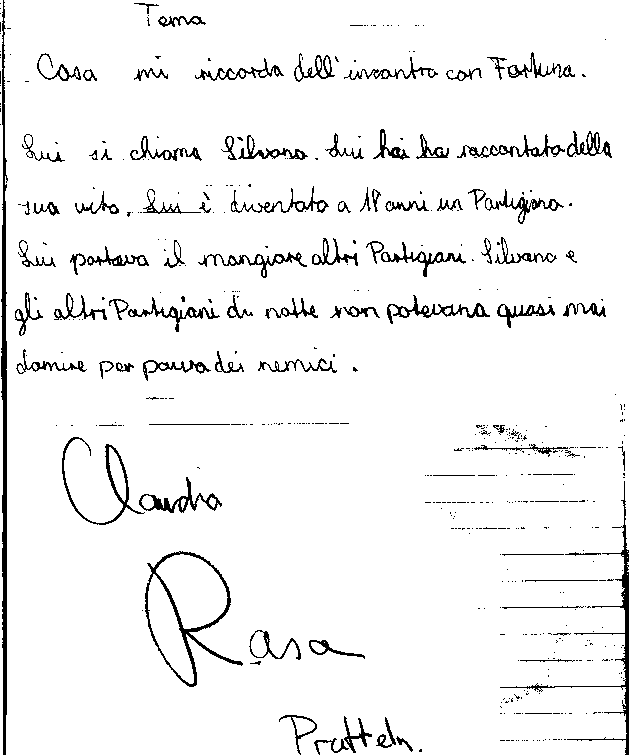 Tema
Cosa mi riccorda dell'incontro con Fortuna.
Lui si chiama Silvano. Lui hai ha raccontato della
sua vita. Lui è diventato a 18 anni un Partigiano.
Lui portava il mangiare altri Partigiani. Silvano e
gli altri Partigiani di notte non potevano quasi mai
domire per paura dei nemici.
Claudia
Rasa
Pratteln.